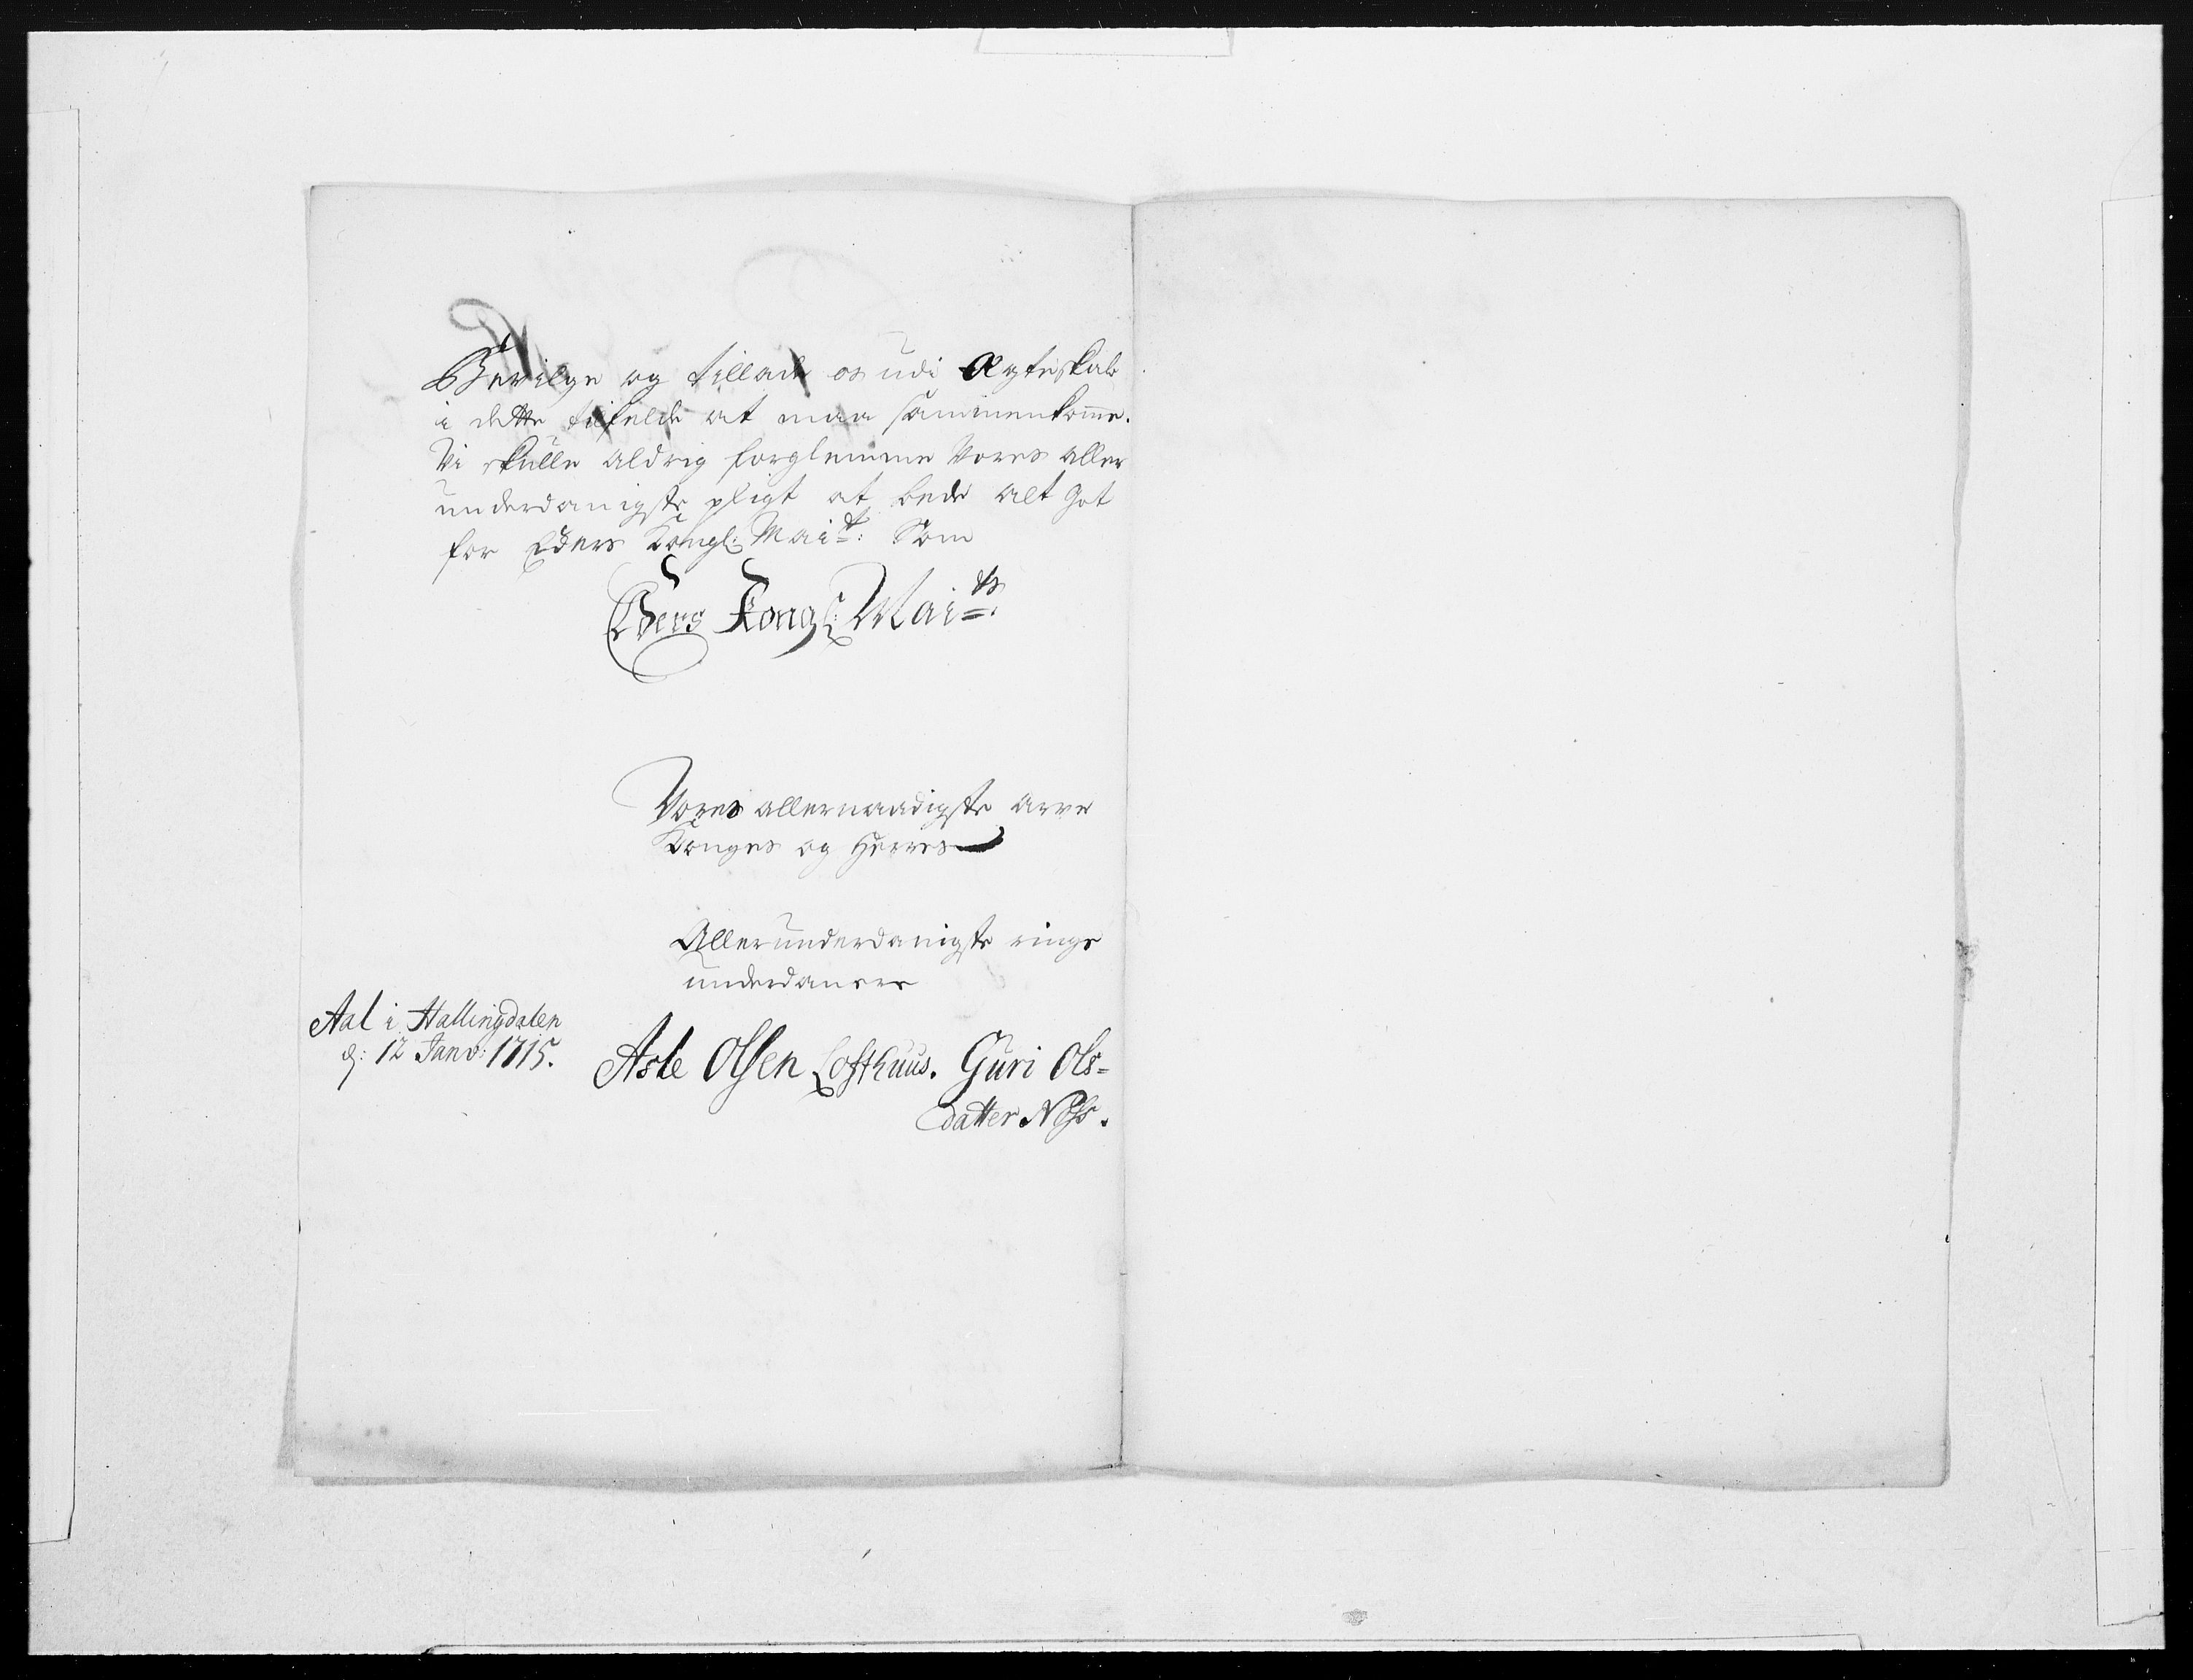 Bevilge og tillade os udi Ægteskab
i dette tilfelde at maa sammenkome.
Vi skulle aldrig forglemme Vores aller
underdanigste pligt at bede alt Got
for Eders Kongl: Mait: Som
Eders Kongl: Maits:
Vores allernaadigste Arve
Konges og Herres
Allerunderdanigste ringe
underdanere
Aal i Hallingdalen
d: 12 Janv: 1715.
Asle Olsen Lofthuus. Guri Ols=
datter Nøss.